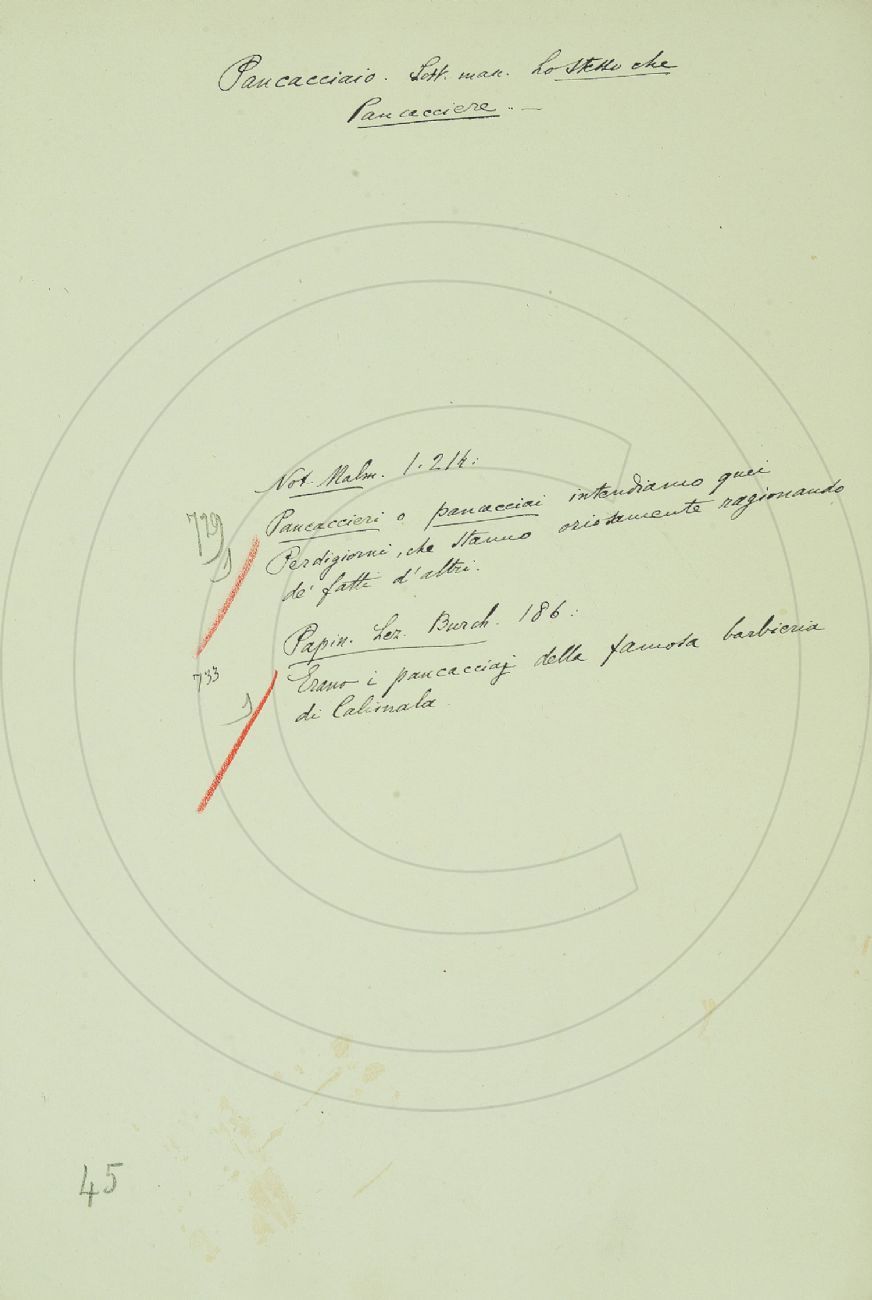 Pancacciaio. Sost. man. Lo stesso che
Pancacciere. —
Not. Malm. 1. 214:
Pancaccieri o pancacciai intendiamo quei
Perdigiorni, che stanno oziosamente ragionando
de' fatti d'altri.
779
1
Papin. Lez. Burch. 186:
Erano i pancacciaj della famosa barbieria
di Calimala.
733
1
45